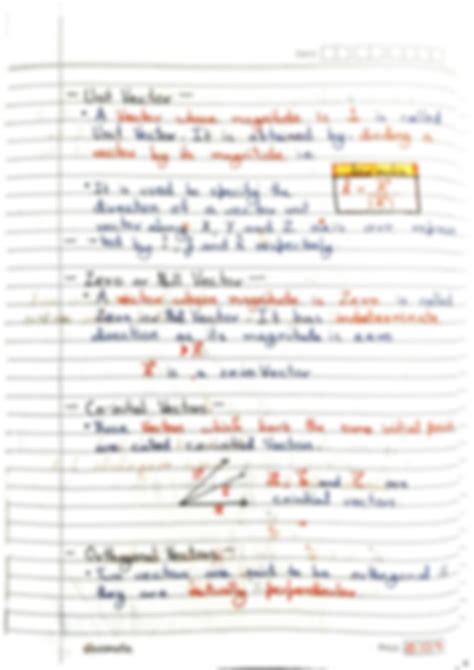 - Unit Vector -
• A Vector whose magnitude is 1 is called
Unit Vector. It is obtained by dividing a
vector by its magnitude i.e
• It is used to specify the
direction of a vector unit
vector along X, Y, and Z axis are repres
- ted by i, j and k respectively.
- Zero or Null Vector -
• A vector whose magnitude is Zero is called
Zero or Null Vector. It has indeterminate
direction as its magnitude is zero
is a zero Vector
- Co-initial Vectors -
• Those vectors which have the same initial point
are called co-initial Vectors.
and are
coinitial vectors
- Orthogonal Vectors -
• Two vectors are said to be orthogonal if
they are mutually perpendicular